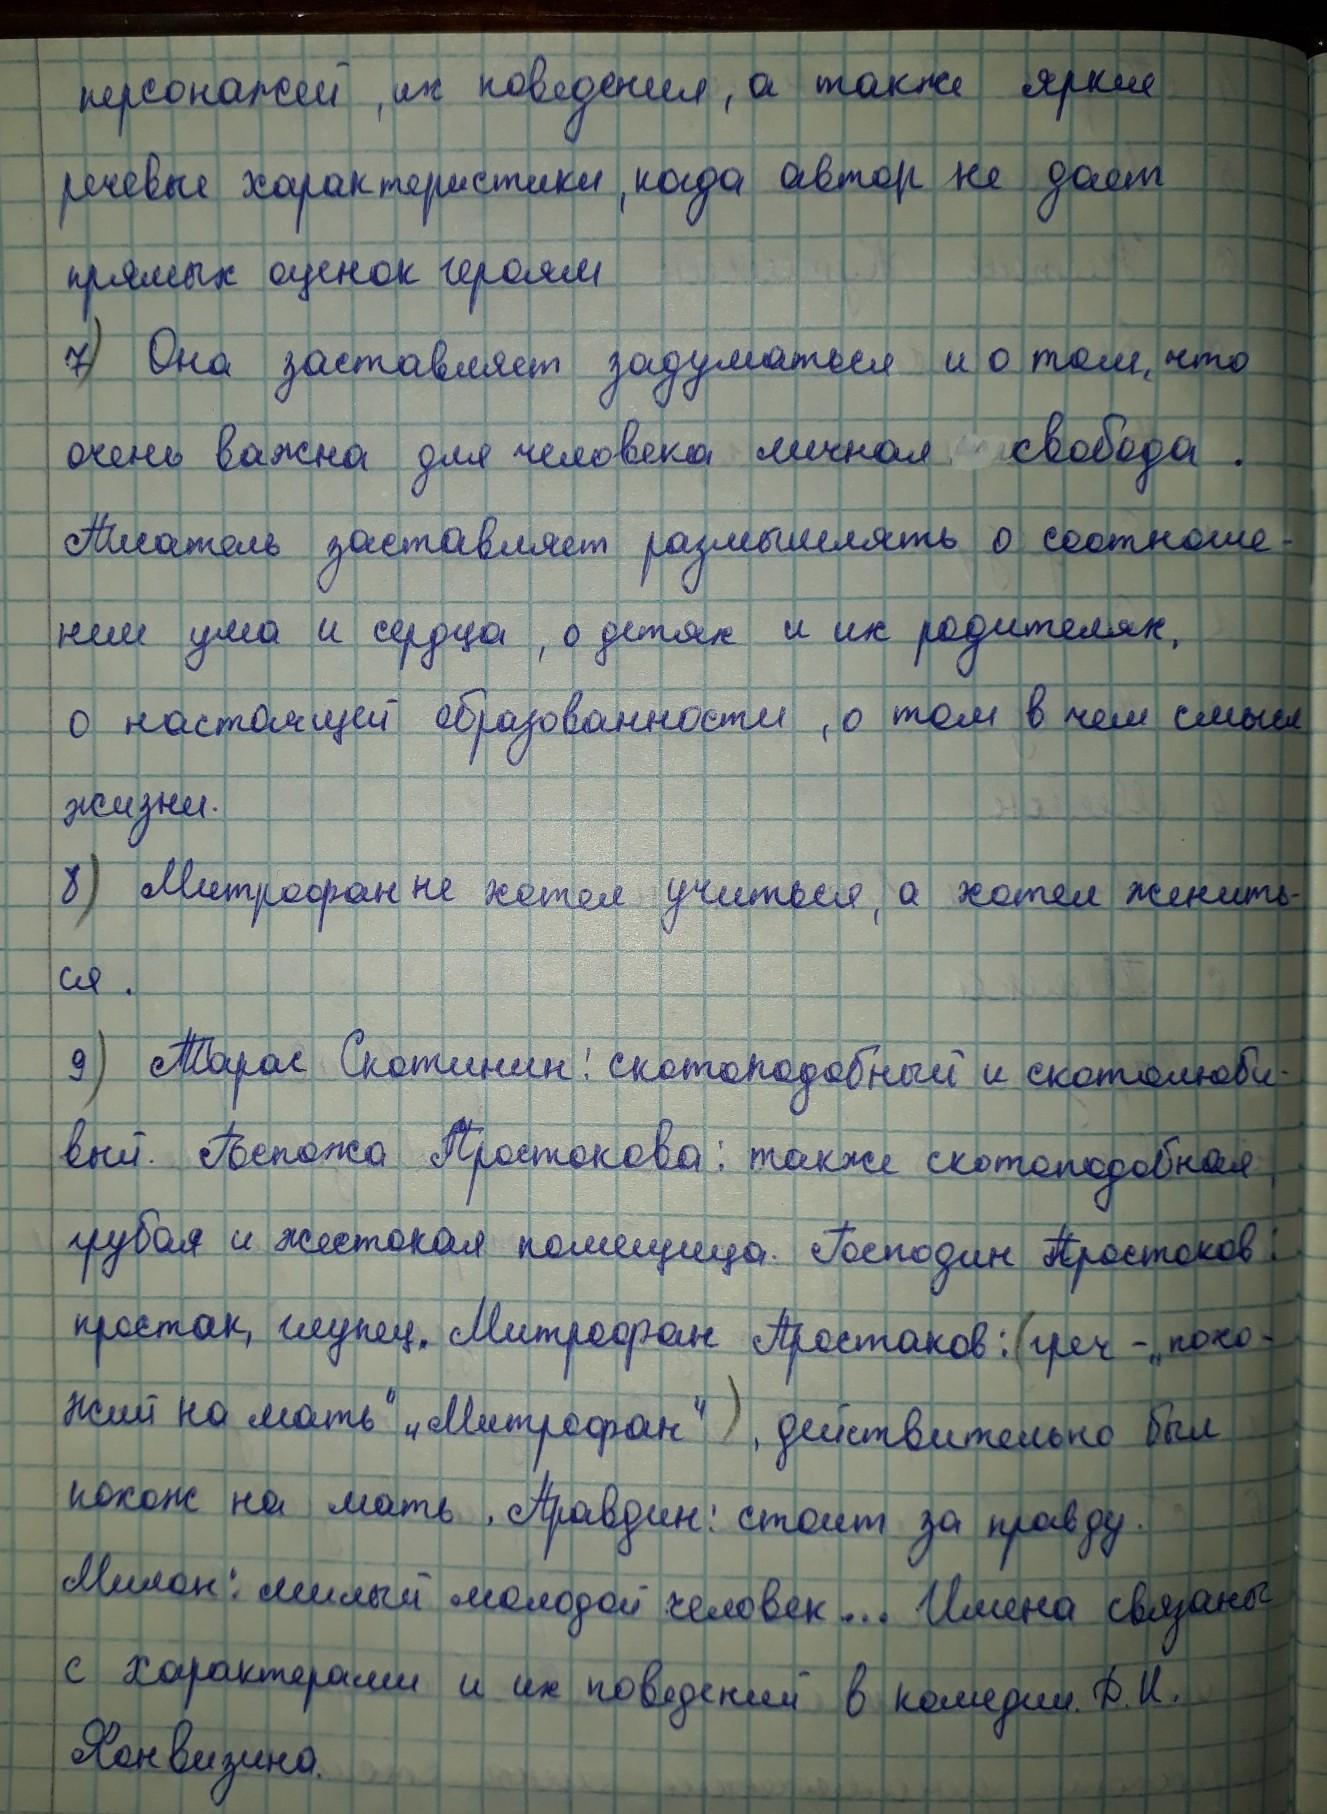 персонажей, их поведения, а также яркие
речевые характеристики, когда автор не дает
прямых оценок героям
7) Она заставляет задуматься и о том, что
очень важна для человека личная свобода.
Писатель заставляет размышлять о соотноше-
нии ума и сердца, о детях и их родителях,
о настоящей образованности, о том в чем смысл
жизни.
8) Митрофан не хотел учиться, а хотел женить-
ся.
9) Тарас Скотинин: скотоподобный и скотолюби-
вый. Госпожа Простокова: также скотоподобная,
грубая и жестокая помещица. Господин Простоков:
простак, глупец. Митрофан Простаков: (греч - „похо-
жий на мать" „Митрофан"), действительно был
похож на мать. Правдин: стоит за правду.
Милон: милый молодой человек... Имена связаны
с характерами и их поведений в комедии. Д.И.
Фонвизина.